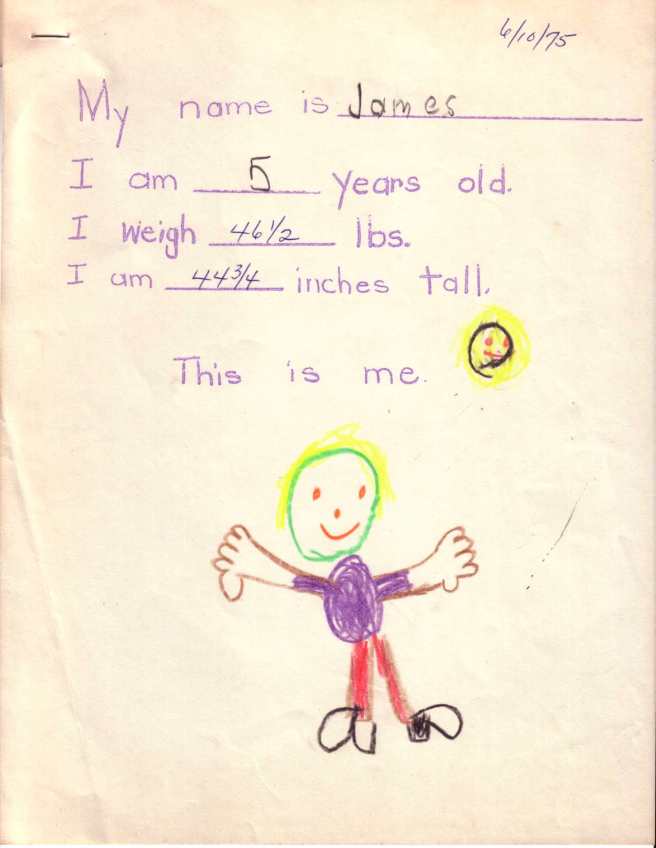 6/10/75
My name is James
I am 5 years old.
I weigh 46 1/2 lbs.
I am 44 3/4 inches tall.
This is me.